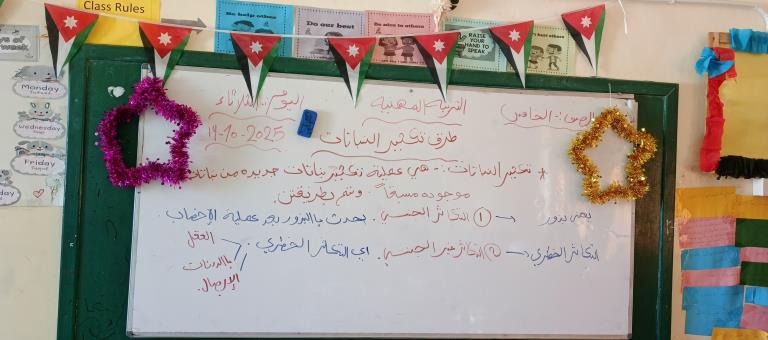 Class Rules
Be help others
Do our best
Be nice to others
RAISE YOUR HAND TO SPEAK
Monday
Wednesday
Friday
الصف:- الخامس
التربية المهنية
اليوم:- الثلاثاء
14-10-2025
طرق تكثير النباتات
* تكثير النباتات:- هي عملية تكثير نباتات جديده من نباتات
موجوده مسبقاً. وتتم بطريقتين.
① التكاثر الجنسي. يحدث بالبذور بعد عملية الاخصاب
التكاثر الخضري ← ② التكاثر غير الجنسي. اي التكاثر الخضري.
العقل
بالدرنات